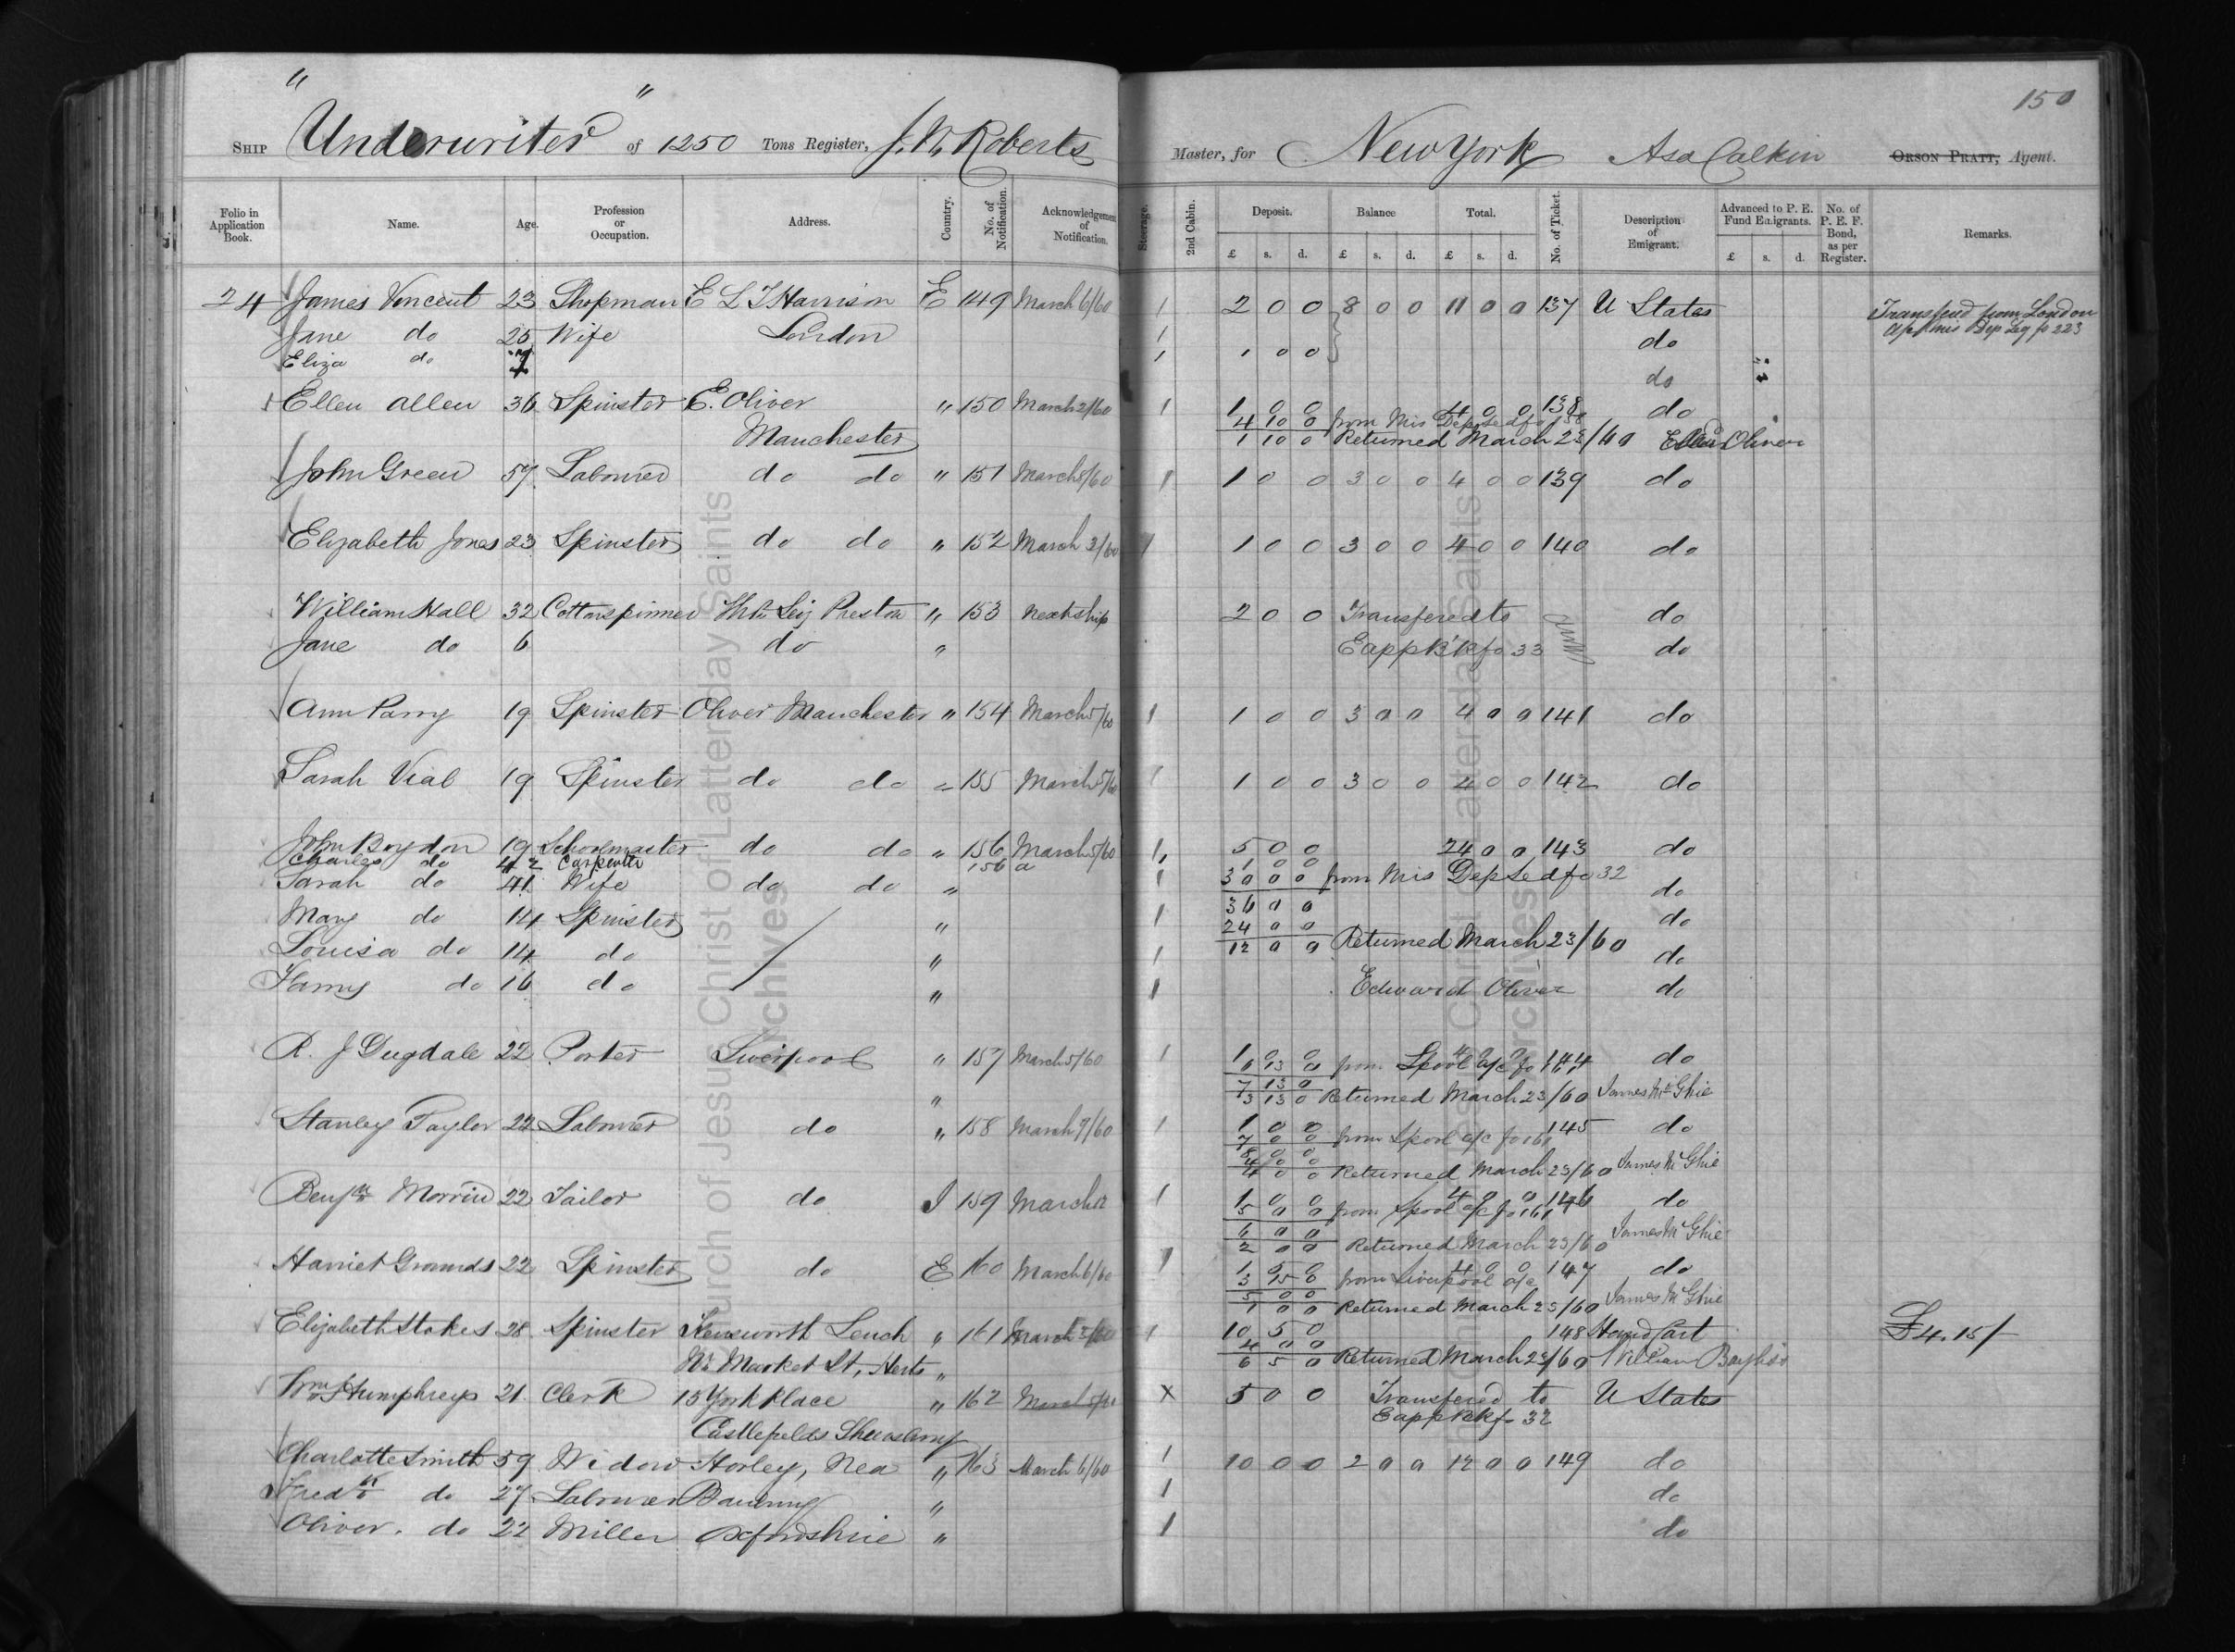 150
SHIP "Underwriter" of 1250 Tons Register, J. W. Roberts Master, for New York Asa Calkin ORSON PRATT, Agent.
Folio in Application Book. Name. Age. Profession or Occupation. Address. Country. No. of Notification. Acknowledgement of Notification. Steerage. 2nd Cabin. Deposit. Balance Total. No. of Ticket. Description of Emigrant. Advanced to P. E. Fund Emigrants. No. of P. E. F. Bond, as per Register. Remarks.
£ s. d. £ s. d. £ s. d. £ s. d.
24 James Vincent 23 Shopman E L T Harrison E 149 March 6/60 1 2 0 0 8 0 0 11 0 0 137 U States Transfered from London
Jane do 25 Wife London 1 do
Eliza do 1 1 0 0 do
Ellen Allen 36 Spinster E. Oliver " 150 March 2/60 1 1 0 0 4 0 0 138 do
Manchester 4 10 0 from Mis Dep Led fo 158
1 10 0 Returned March 23/60 Oliver
John Green 57 Labourer do do " 151 March 5/60 1 1 0 0 3 0 0 4 0 0 139 do
Elizabeth Jones 23 Spinster do do " 152 March 3/60 1 1 0 0 3 0 0 4 0 0 140 do
William Hall 32 Cottonspinner Preston " 153 next ship 2 0 0 Transfered to do
Jane do 6 do " E app Bk fo 33 do
Ann Parry 19 Spinster Oliver Manchester " 154 March 5/60 1 1 0 0 3 0 0 4 0 0 141 do
Sarah Vial 19 Spinster do do " 155 March 5/60 1 1 0 0 3 0 0 4 0 0 142 do
John Boydon 19 Schoolmaster do do " 156 March 5/60 1 5 0 0 24 0 0 143 do
Charles do 42 Carpenter 156 a 1 1 0 0
Sarah do 41 Wife do do " 1 30 0 0 from Mis Dep Led fo 32 do
Mary do 14 Spinster " 1 36 0 0 do
24 0 0
Louisa do 14 do " 1 12 0 0 Returned March 23/60 do
Fanny do 16 do " 1 Edward Oliver do
R. J Dugdale 22 Porter Liverpool " 157 March 5/60 1 1 0 0 4 0 0 144 do
6 13 0 from Lpool a/c fo 161
7 13 0
" 3 13 0 Returned March 23/60 James McGhie
Stanley Taylor 22 Labourer do " 158 March 7/60 1 1 0 0 145 do
7 0 0 from Lpool a/c fo 161
8 0 0
4 0 0 Returned March 23/60 James McGhie
Benjn Morrin 22 Tailor do I 159 March 12 1 1 0 0 4 0 0 146 do
5 0 0 from Lpool a/c fo 161
6 0 0
2 0 0 Returned March 23/60 James McGhie
Harriet Grounds 22 Spinster do E 160 March 6/60 1 1 5 0 4 0 0 147 do
3 15 0 from Liverpool a/c
5 0 0
1 0 0 Returned March 23/60 James McGhie
Elizabeth Stokes 28 Spinster Kensworth Lench " 161 March 1 10 5 0 148 Hand Cart £4.15/
4 0 0
Nr Market St, Herts " 6 5 0 Returned March 23/60 William Bayliss
Wm Humphreys 21 Clerk 15 York Place " 162 March 5/60 X 5 0 0 Transfered to U States
Castlefields Shrewsbury E app Bk fo 32
Charlotte Smith 59 Widow Horley, Nea " 163 March 6/60 1 10 0 0 2 0 0 12 0 0 149 do
Fredk do 27 Labourer Banbury " 1 do
Oliver. do 22 Miller Oxfordshire " 1 do
Church of Jesus Christ of Latter-day Saints
Archives
Church of Jesus Christ of Latter-day Saints
Archives